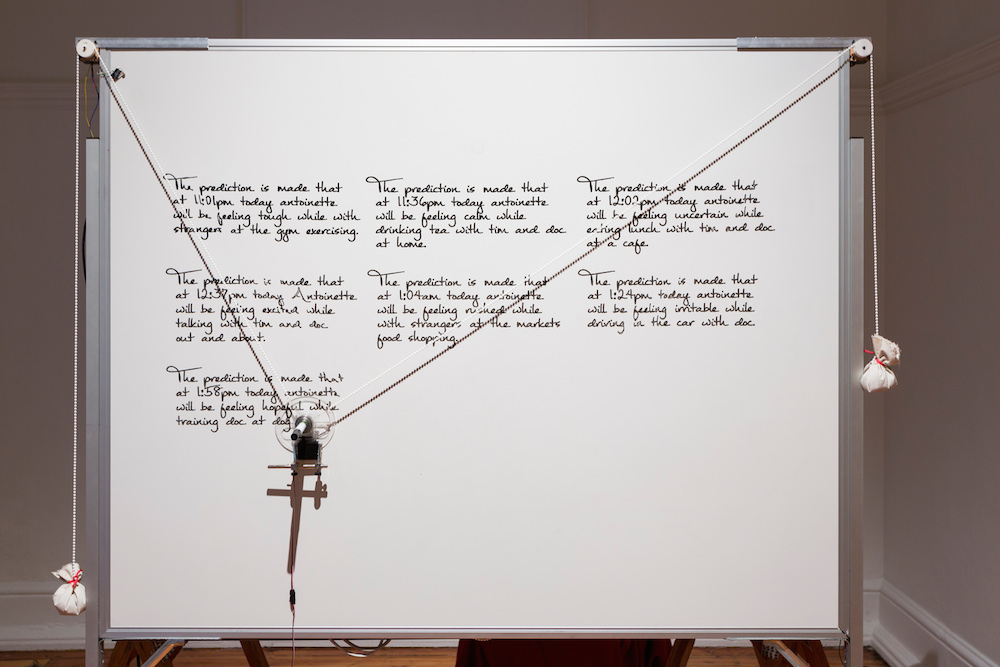 The prediction is made that
at 11:01pm today antoinette
will be feeling tough while with
strangers at the gym exercising.
The prediction is made that
at 11:36pm today antoinette
will be feeling calm while
drinking tea with tim and doc
at home.
The prediction is made that
at 12:02pm today antoinette
will be feeling uncertain while
eating lunch with tim and doc
at a cafe.
The prediction is made that
at 12:37pm today Antoinette
will be feeling excited while
talking with tim and doc
out and about.
The prediction is made that
at 1:04am today antoinette
will be feeling rushed while
with strangers at the markets
food shopping.
The prediction is made that
at 1:24pm today antoinette
will be feeling irritable while
driving in the car with doc
The prediction is made that
at 1:58pm today antoinette
will be feeling hopeful while
training doc at dog